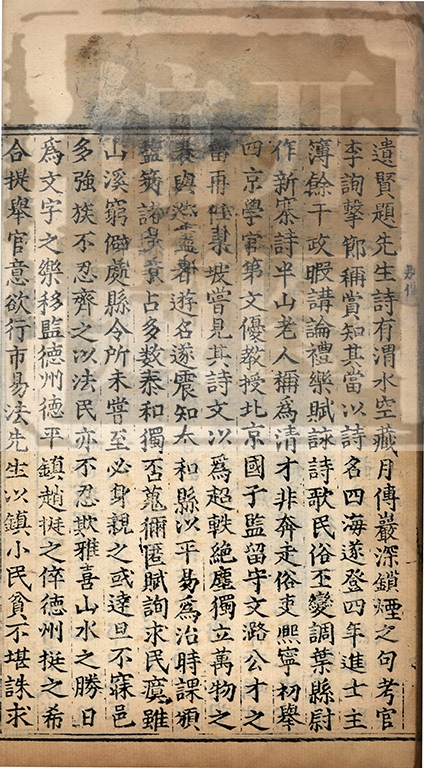 遺賢題先生詩有渭水空藏月傳巖深鎖煙之句考官
李詢擊節稱賞知其當以詩名四海遂登四年進士主
簿餘干政暇講論禮樂賦詠詩歌民俗丕變調葉縣尉
作新寨詩半山老人稱爲清才非奔走俗吏熙寧初舉
四京學官第文優教授北京國子監留守文潞公才之
留再任東坡嘗見其詩文以爲超軼絕塵獨立萬物之
表與遊名遂震知太和縣以平易爲治時課頒
鹽筴諸占多數泰和獨否蒐獮匿賦詢求民瘼雖
山溪窮僻處縣令所未嘗至必身親之或達旦不寐邑
多強族不忍齊之以法民亦不忍欺雅喜山水之勝日
爲文字之樂移監德州德平鎮趙挺之倅德州挺之希
合提舉官意欲行市易法先生以鎮小民貧不堪誅求
別傳